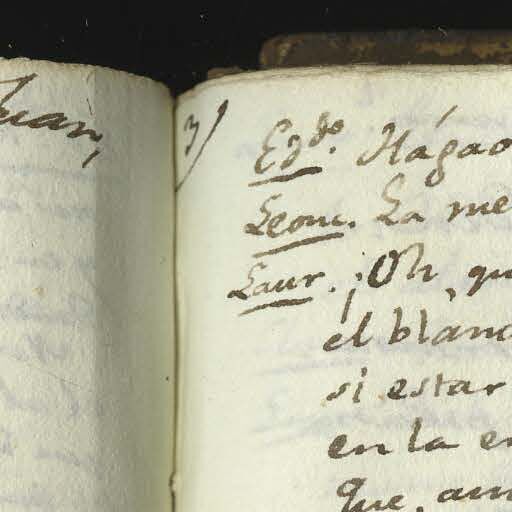 Juan,
3)
Egdo. Hágao
Leonc. La me
Laur. ¡Oh, qu
el blanc
si estar
en la en
que, am